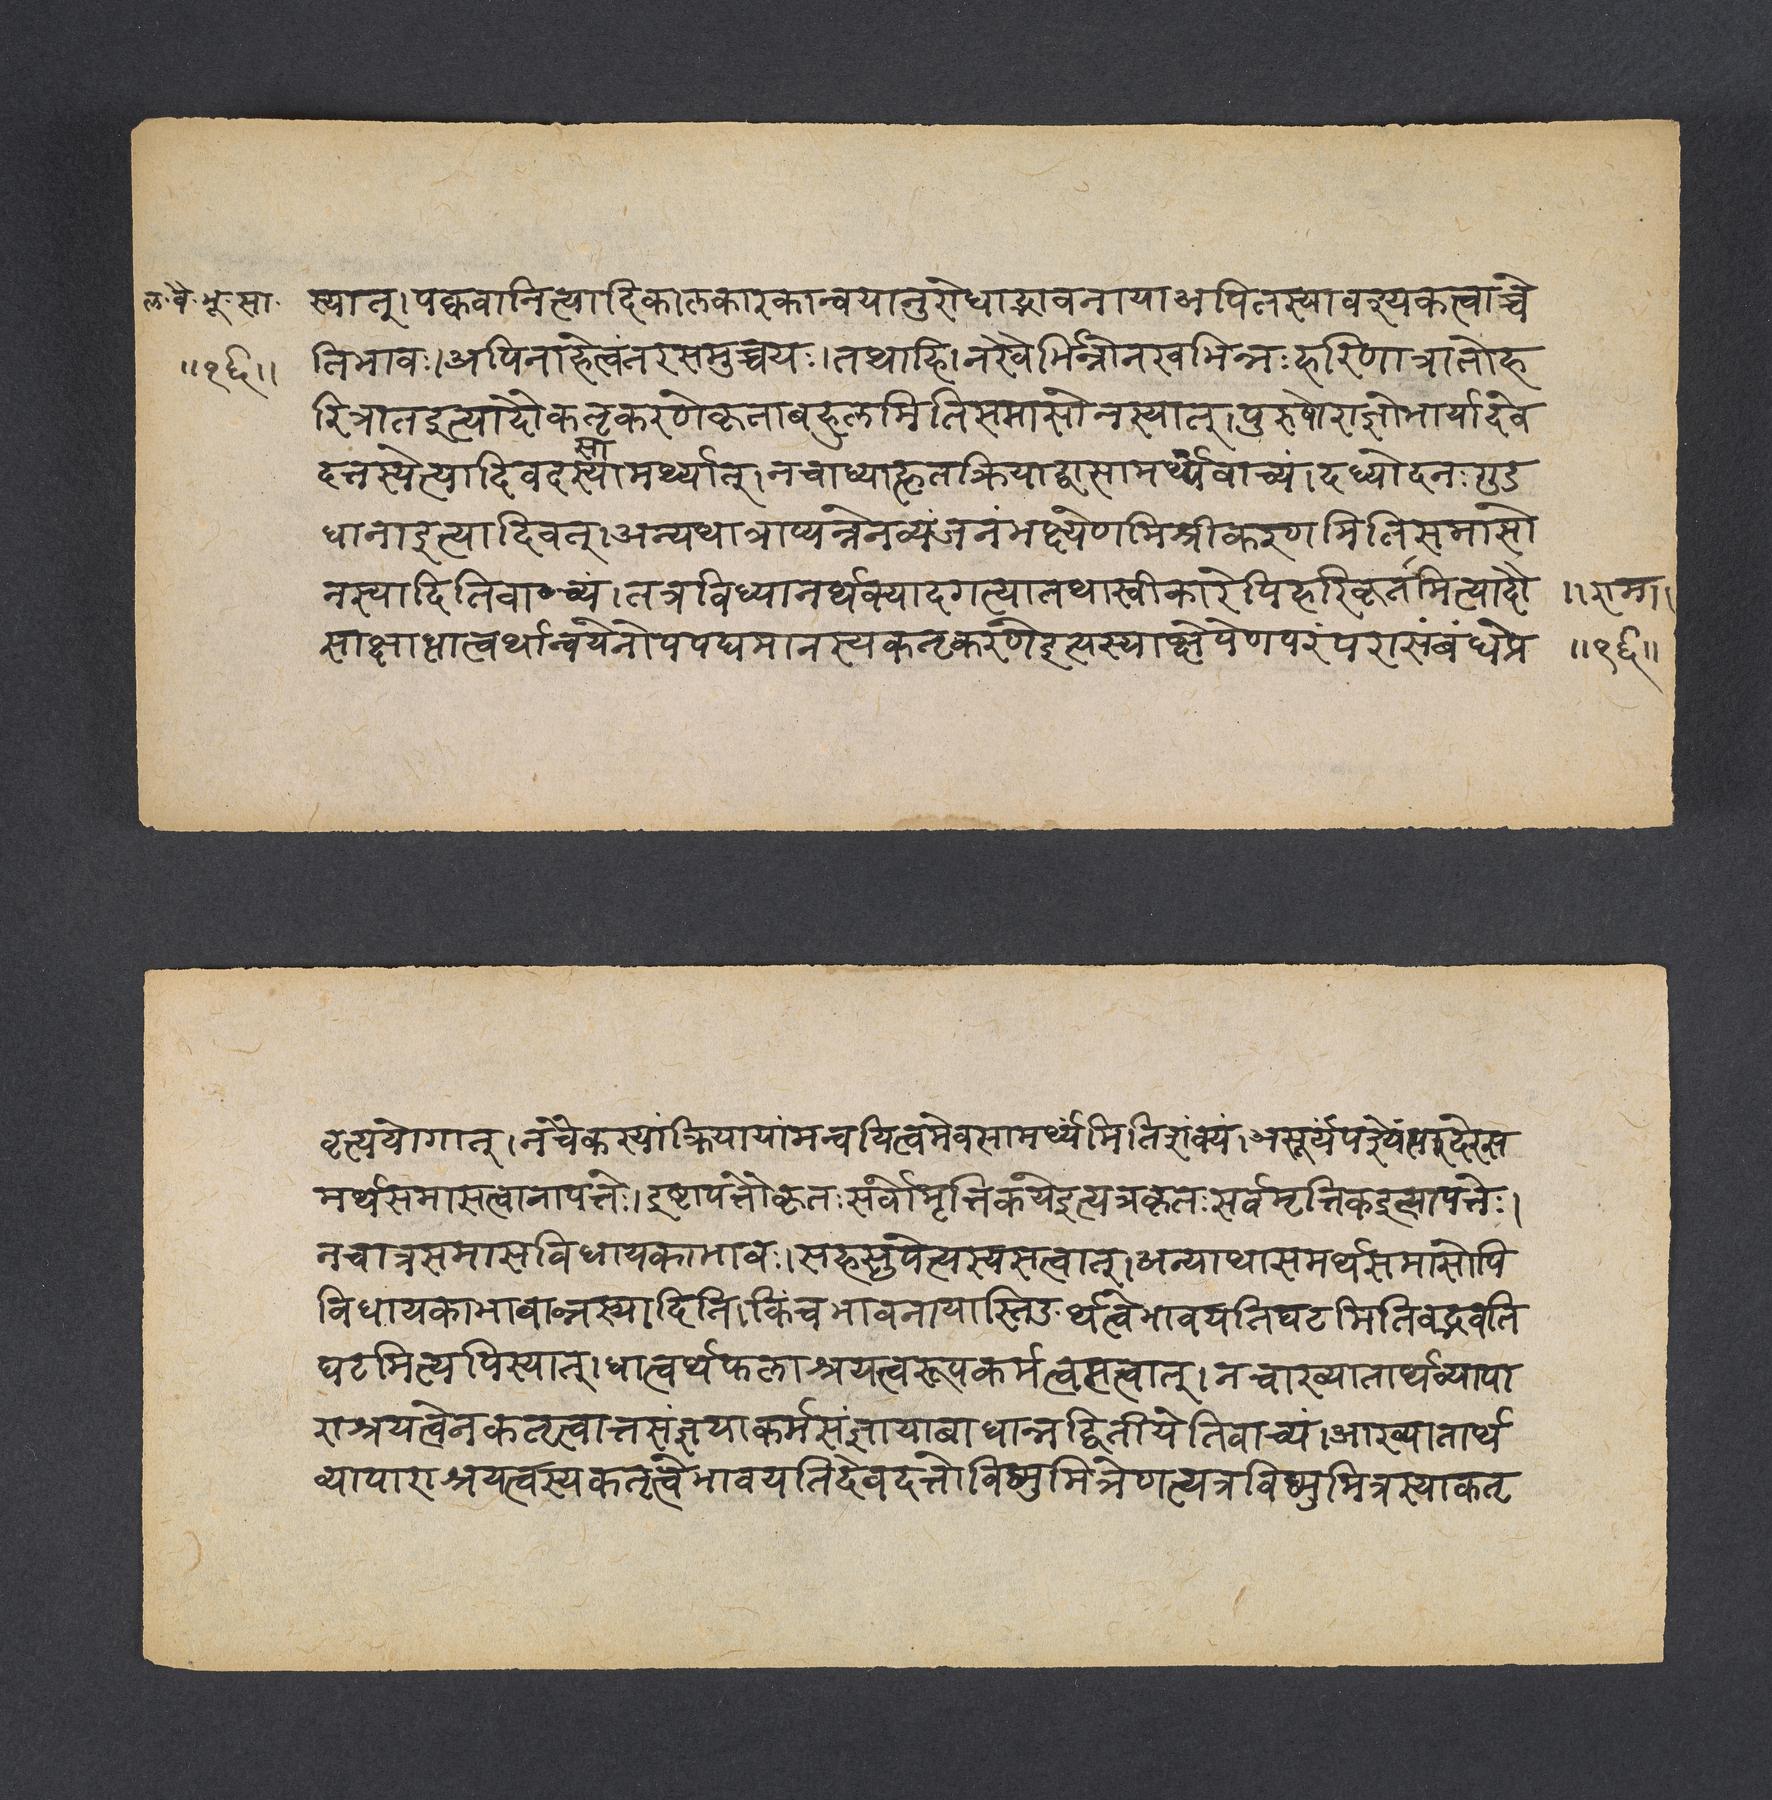 ल॰वै॰भू॰सा॰
॥१६॥
स्यात्।पक्ववानित्यादिकालकारकान्वयानुरोधाद्भावनायाअपितस्यावश्यकत्वाच्चे
तिभावः।अपिनाहेत्वंतरसमुच्चयः।तथाहि।नखैर्भिन्नौनखभिन्नःहरिणात्रातोह
रित्रातइत्यादौकतृकरणेकृताबहुलमितिसमासोनस्यात्।पुरुषोराज्ञोभार्यादेव
दत्तस्येत्यादिवदसामर्थ्यात्।नचाध्याहृतक्रियाद्वासामर्थ्यंवाच्यं।दध्योदनःगुड
धानाइत्यादिवत्।अन्यथात्राप्यन्नेनव्यंजनंभक्ष्येणमिश्रीकरणमितिसमासो
नस्यादितिवाच्यं।तत्रविध्यानर्थक्यादगत्यातथास्वीकारेपिहरिकृतमित्यादौ
साक्षाधात्वर्थान्वयेनोपपद्यमानस्यकतृकरणेइत्यस्याक्षेपेणपरंपरासंबंधेप्र
॥राम।
॥१६॥
वृत्ययोगात्।नचैकस्यांक्रियायांमन्वयित्वमेवसामर्थ्यमितिशंक्यं।असूर्यंपश्ये
मर्थसमासत्वानापत्तेः।इष्टापत्तौकृतःसर्वोमृत्तिकयेइत्यत्रकृतःसर्वमृत्तिकइत्यापत्तेः।
नचात्रसमासविधायकाभावः।सहसुपेत्यस्यसत्वात्।अन्याथासमर्थसमासोपि
विधायकाभावान्नस्यादिति।किंचभावनायास्तिङर्थत्वेभावयतिघटमितिवद्भवति
घटमित्यपिस्यात्।धात्वर्थफलाश्रयत्वरूपकर्मत्वसत्वात्।नचाख्यातार्थव्यापा
राश्रयत्वेनकतृत्वात्तसंज्ञयाकर्मसंज्ञायाबाधान्नद्वितीयेतिवाच्यं।आख्यातार्थ
व्यापाराश्रयत्वस्यकतृत्वेभावयतिदेवदत्तोविष्णुमित्रेणत्यत्रविष्णुमित्रस्याकतृ